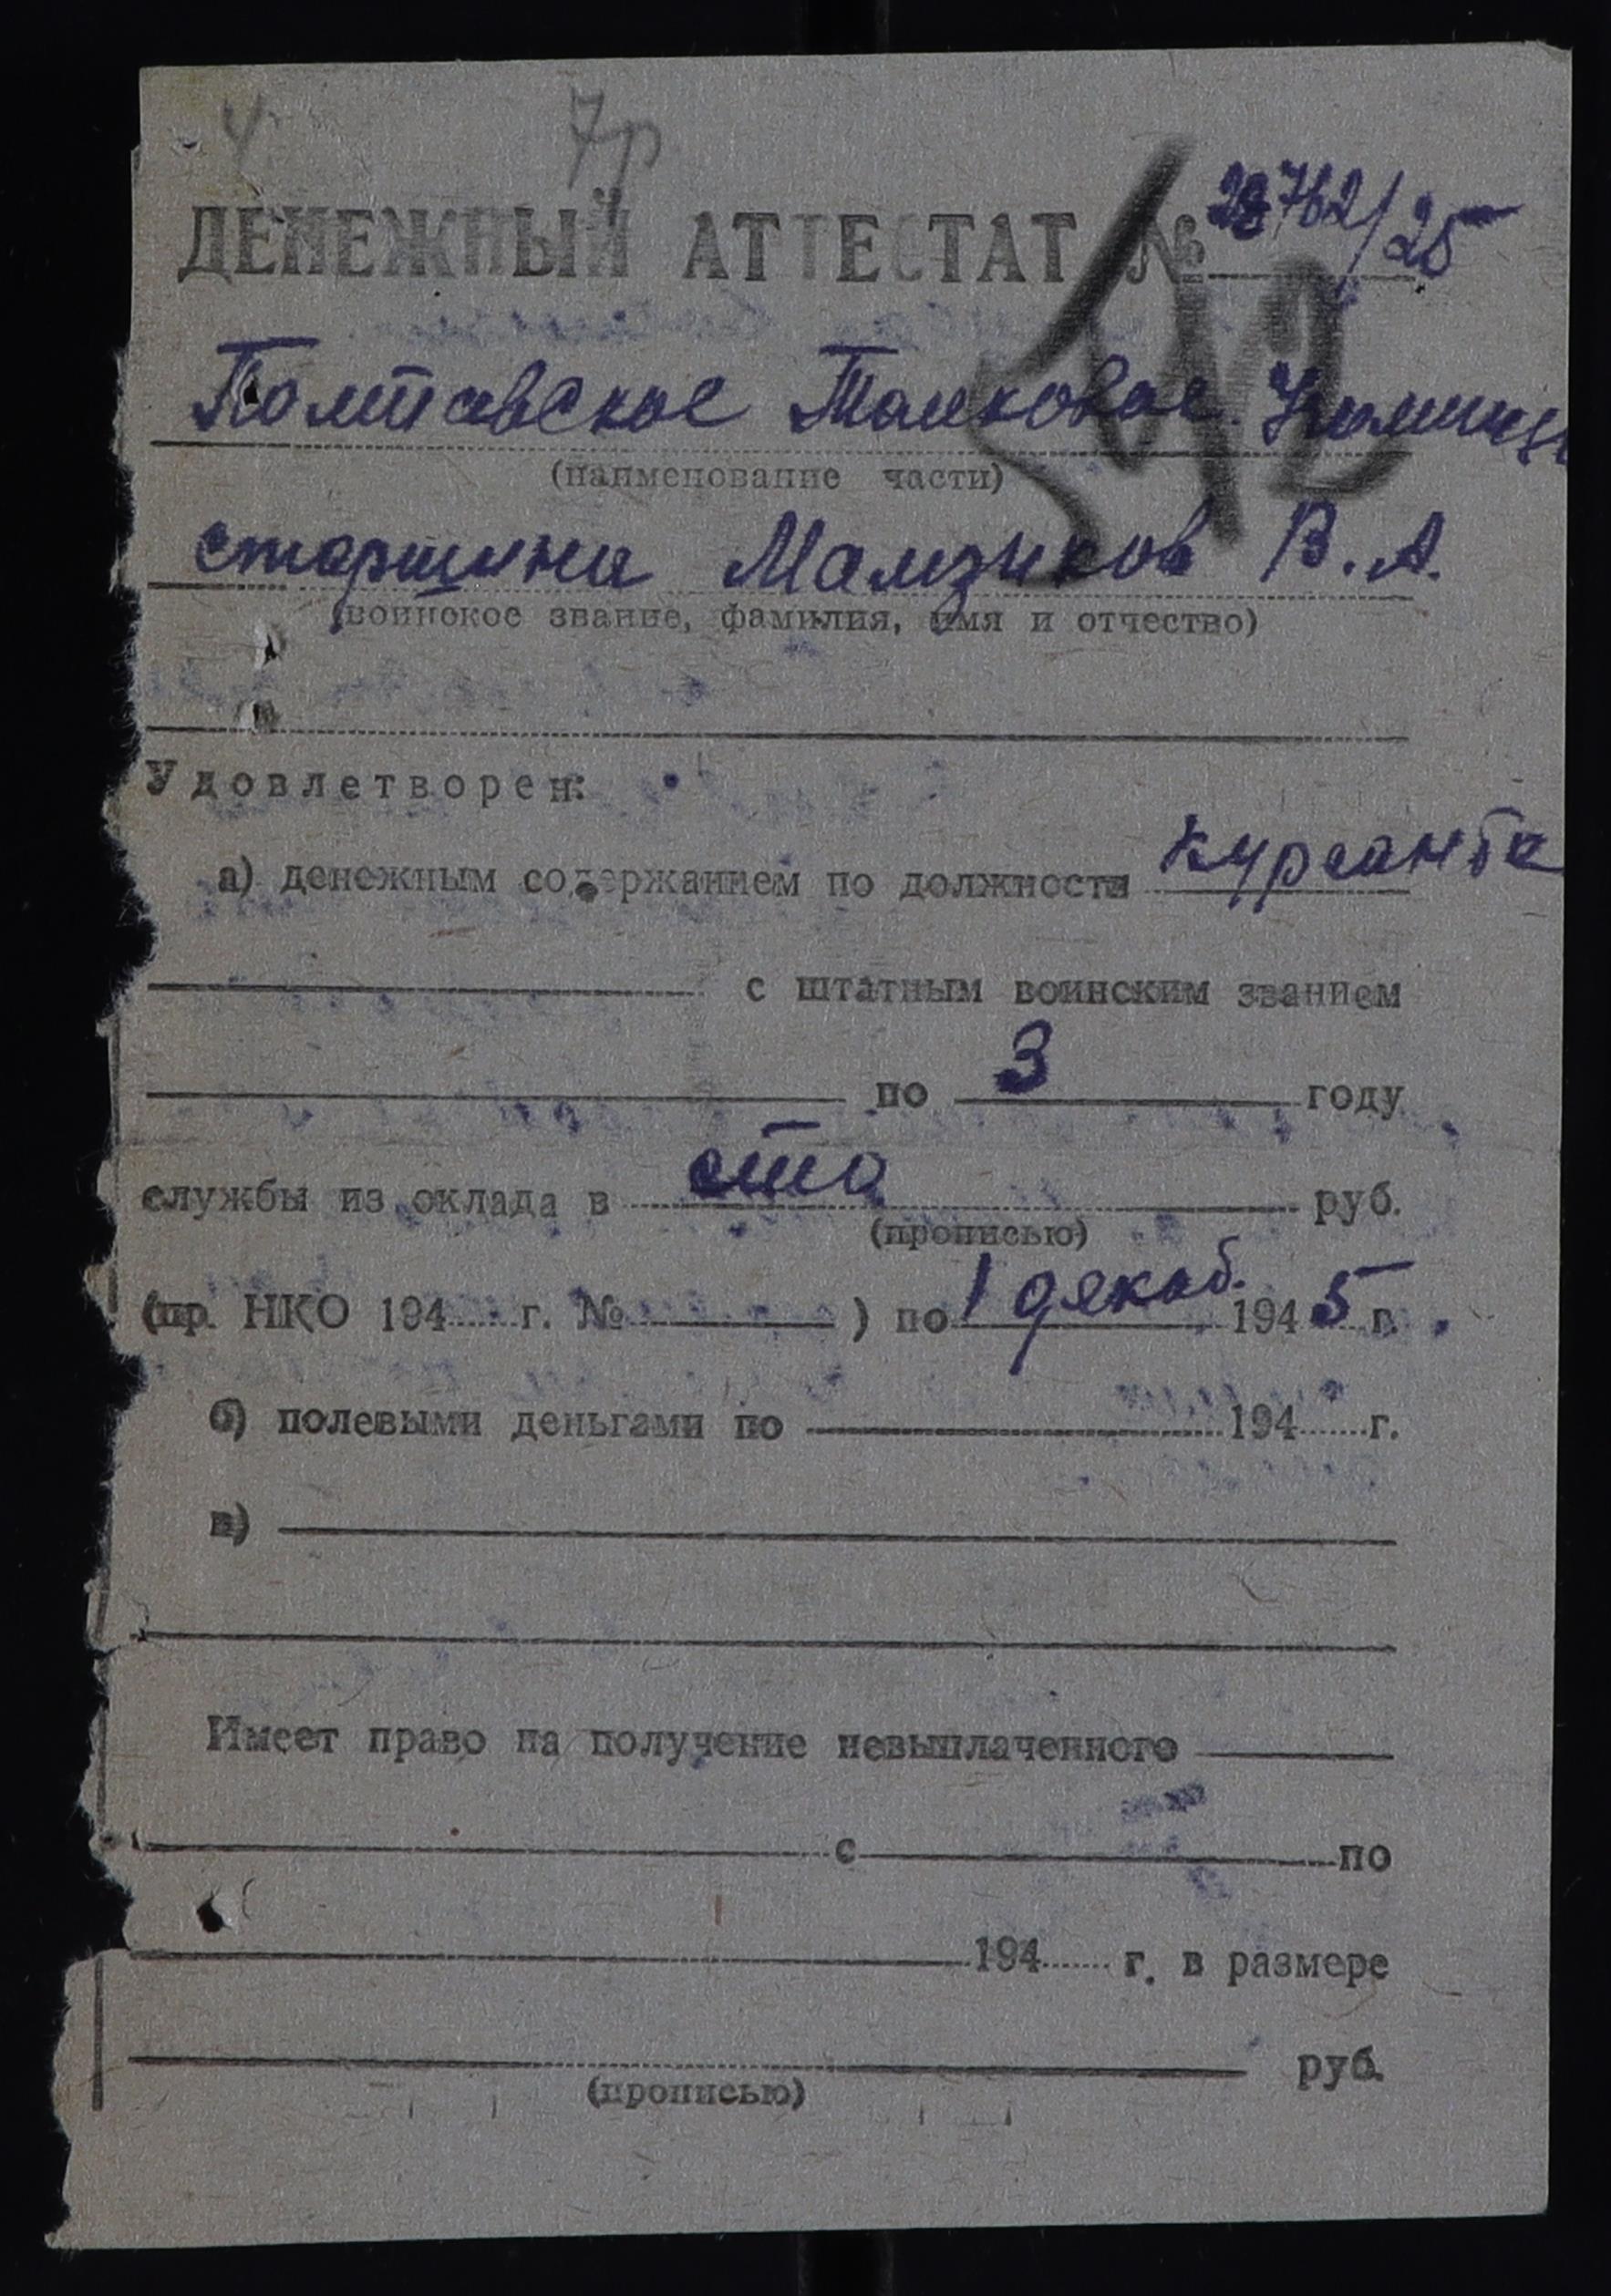 4
7р
ДЕНЕЖНЫЙ АТТЕСТАТ № 28762/25
542
Полтавское Танковое Училище
(наименование части)
старшина Мамзиков В. А.
(воинское звание, фамилия, имя и отчество)
Удовлетворен:
а) денежным содержанием по должности курсанта
с штатным воинским званием
по 3 году
службы из оклада в сто руб.
(прописью)
(пр. НКО 194 г. № ) по 1 декаб. 1945 г.
б) полевыми деньгами по 194 г.
в)
Имеет право на получение невыплаченного
с по
194 г. в размере
руб.
(прописью)